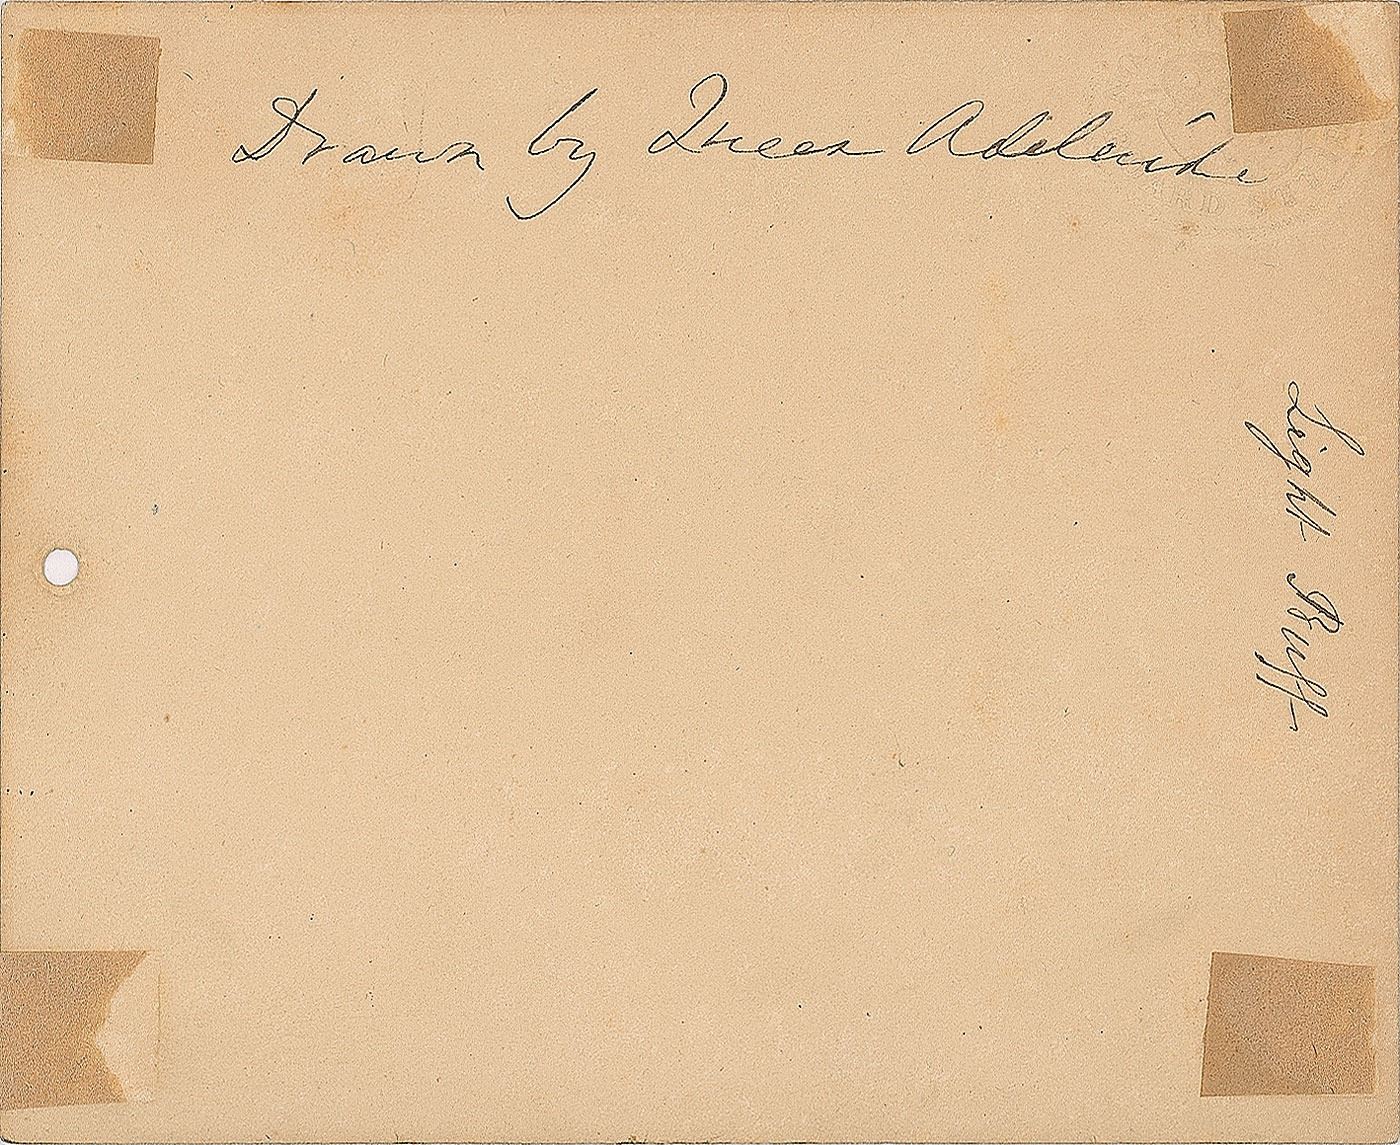 Drawn by Queen Adelaide
Light Buff